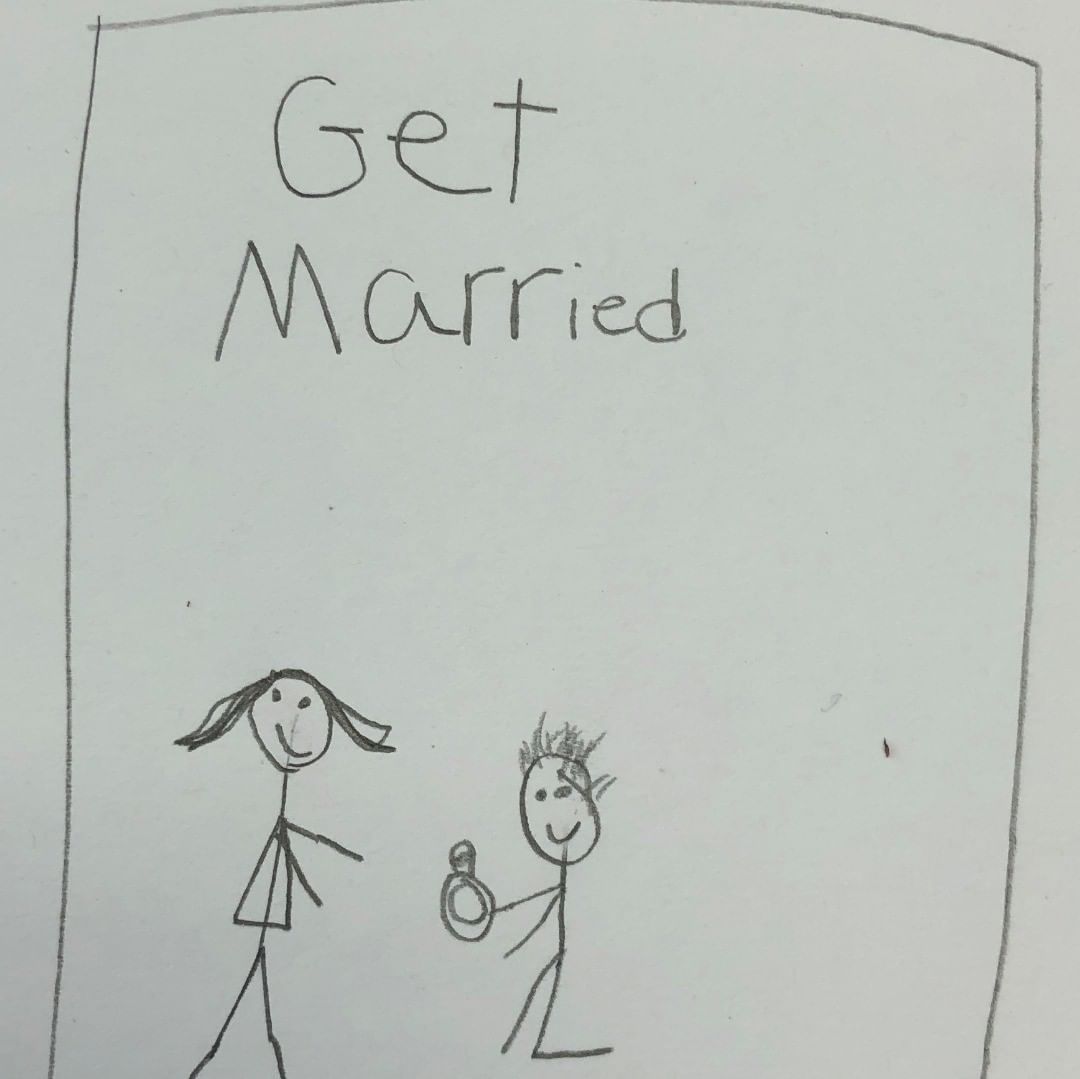 Get
Married